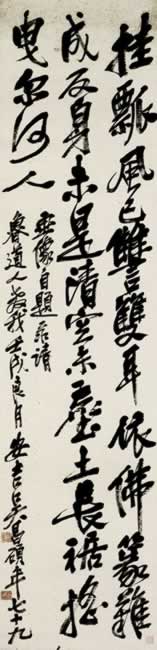 挂瓢風已聾雙耳依佛篆難
成反身未是清空亦塵土長裾搖
曳尔何人
像自題 請
魯道人教我壬戌良月安吉吳昌碩年七十九